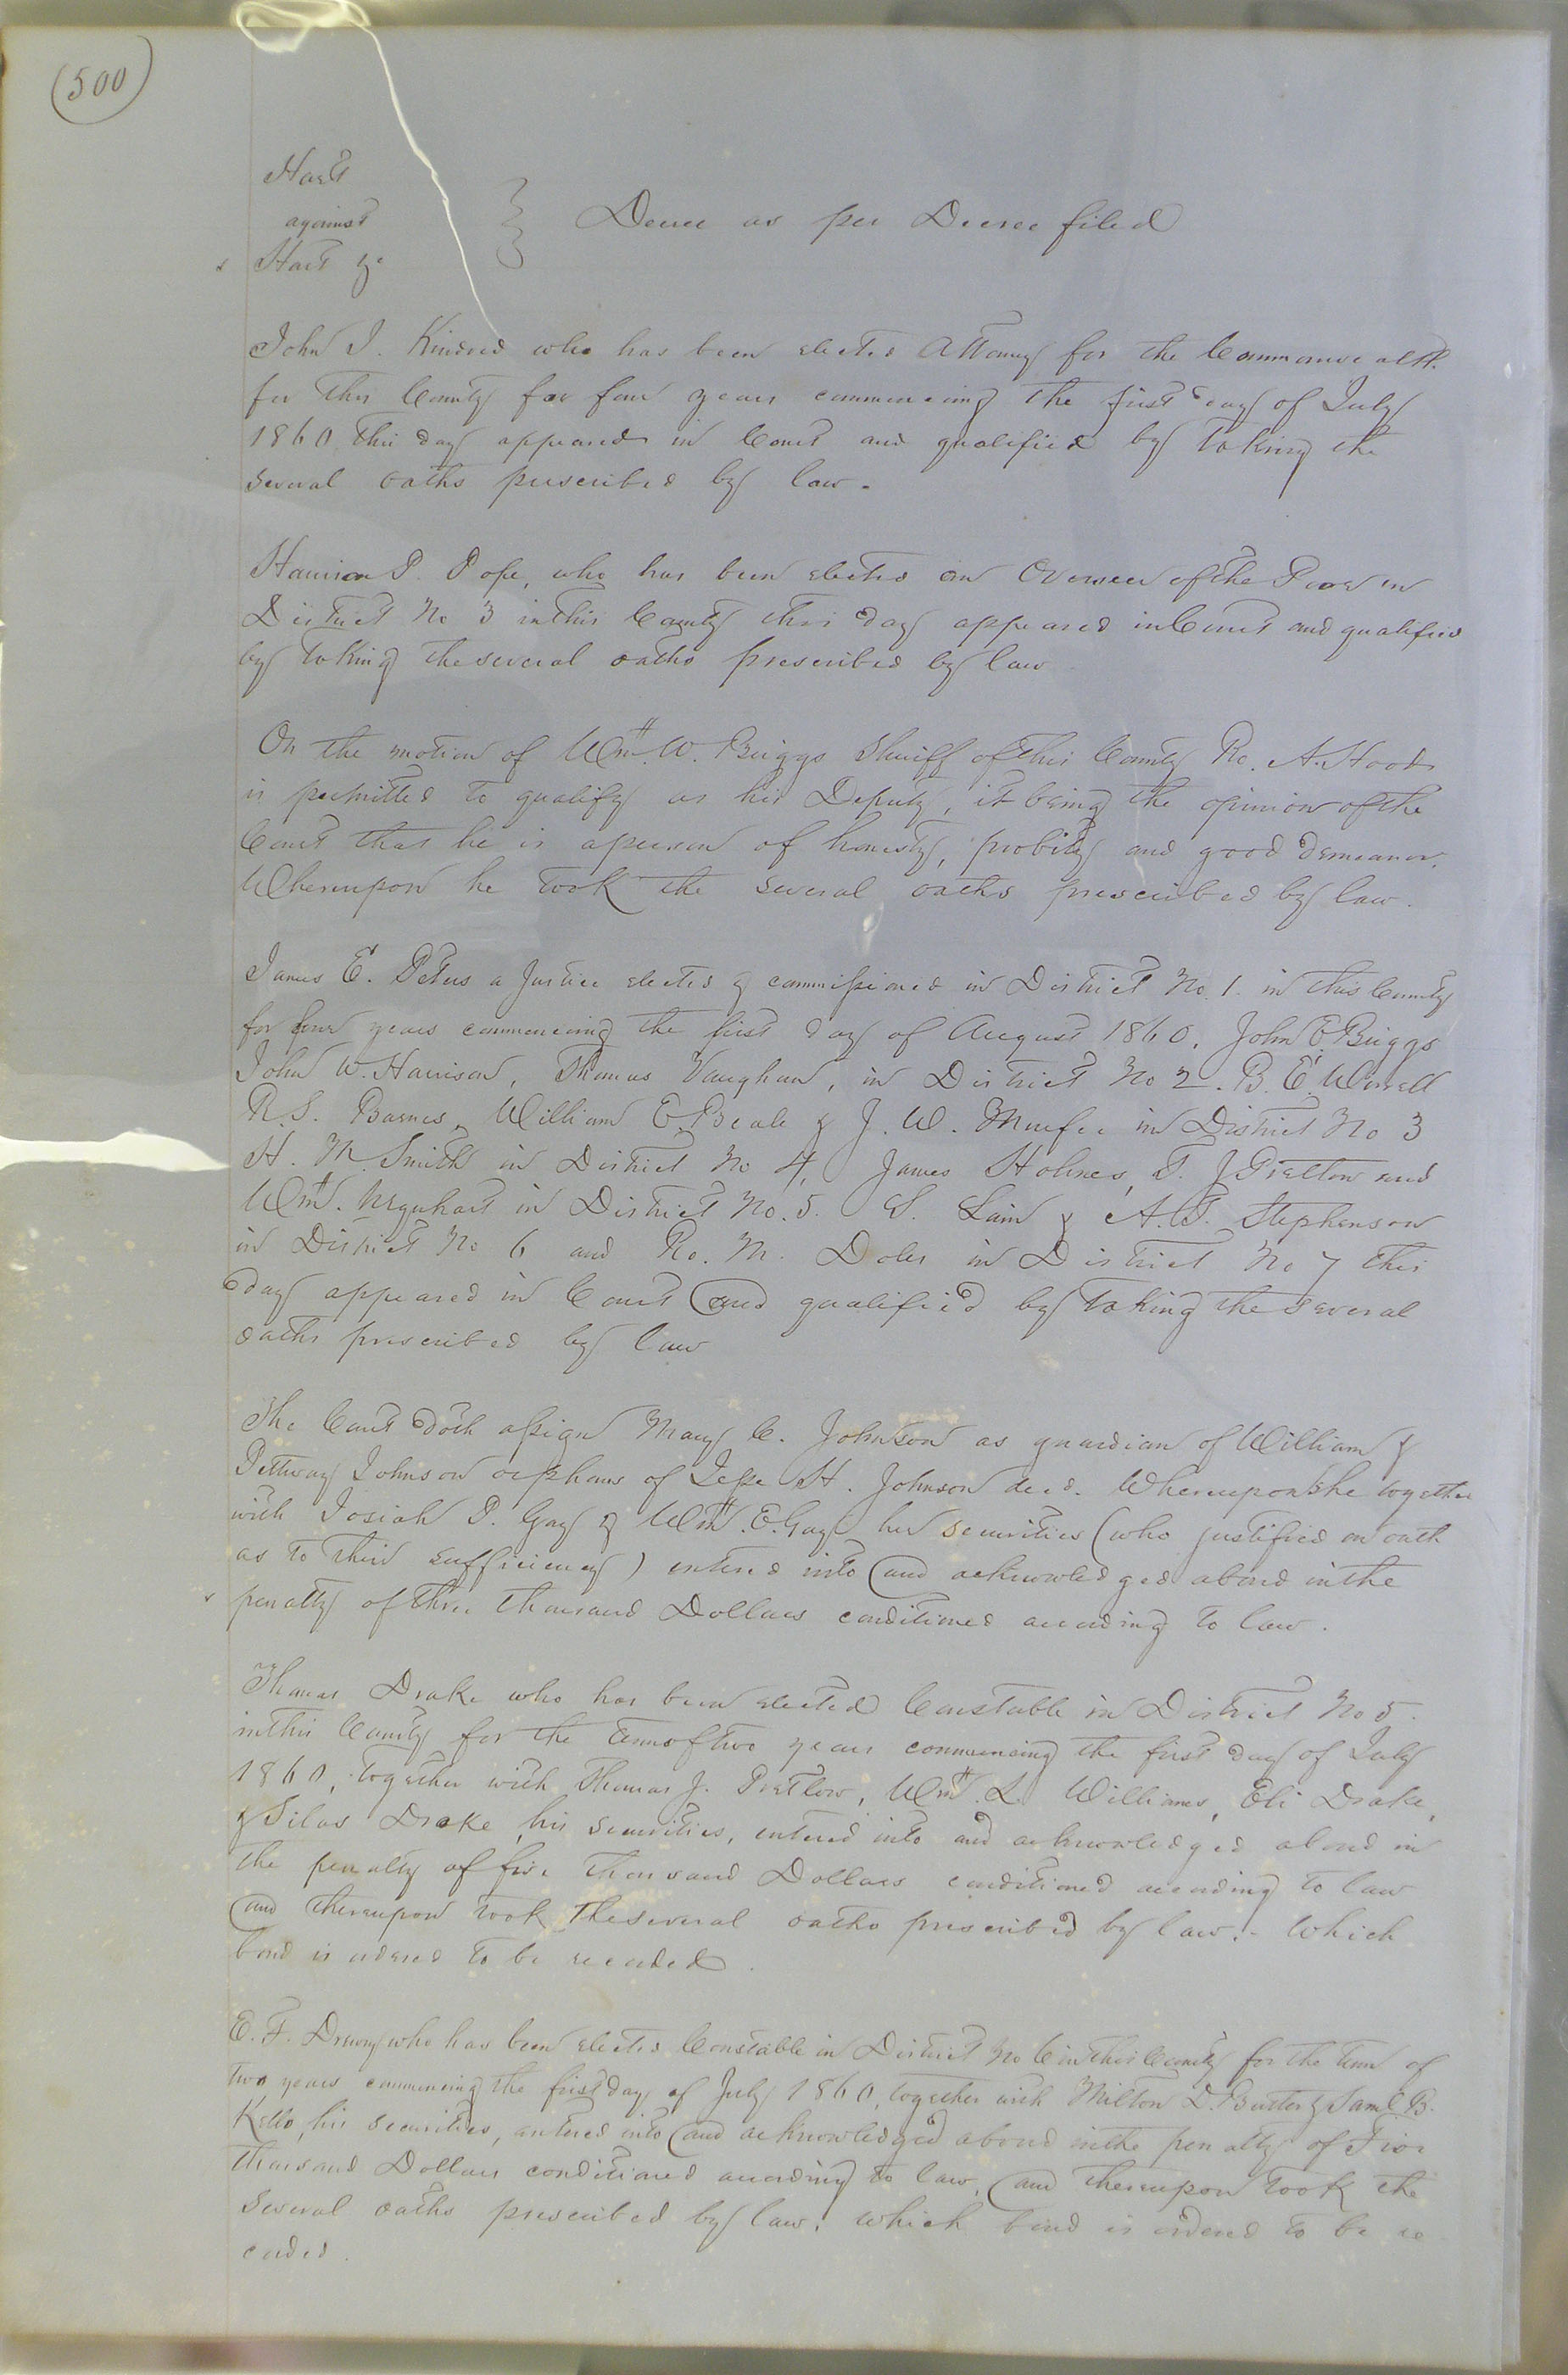 (500)
Hart
against
Hart &c
Decree as per Decree filed
John J. Kindred who has been elected Attorney for the Commonwealth
for this County for four years commencing the first day of July
1860 this day appeared in Court and qualified by taking the
several oaths prescribed by law.
Harrison P. Pope, who has been elected an Overseer of the Poor in
District No 3 in this County this day appeared in Court and qualified
by taking the several oaths prescribed by law
On the motion of Wm. W. Briggs Sheriff of this County Ro. A. Hood
is permitted to qualify as his Deputy, it being the opinion of the
Court that he is a person of honesty, probity and good demeanor.
Whereupon he took the several oaths prescribed by law.
James E. Petus a Justice elected & commissioned in District No. 1. in this County
for four years commencing the first day of August 1860. John E. Briggs
John W. Harrison, Thomas Vaughan, in District No 2. B. E. Worrell
R. S. Barnes, William E. Beale & J. W. Murfee in District No 3
H. M. Smith in District No 4, James Holmes, T. J. Pretlow and
Wm. Urquhart in District No. 5. S. Lain & A. T. Stephenson
in District No 6 and Ro. M. Doles in District No 7 this
day appeared in Court and qualified by taking the several
oaths prescribed by law
The Court doth assign Mary C. Johnson as guardian of William &
Pettway Johnson orphans of Jesse H. Johnson decd. Whereupon she together
with Josiah P. Gay & Wm. E. Gay her securities (who justified on oath
as to their sufficiency) entered into and acknowledged a bond in the
penalty of three thousand Dollars conditioned according to law.
Thomas Drake who has been elected Constable in District No 5.
in this County for the term of two years commencing the first day of July
1860, together with Thomas J. Pretlow, Wm. L. Williams, Eli Drake,
& Silas Drake his securities, entered into and acknowledged a bond in
the penalty of five thousand Dollars conditioned according to law
and thereupon took the several oaths prescribed by law. - Which
bond is ordered to be recorded.
E. F. Drewry who has been elected Constable in District No 6 in this County for the term of
two years commencing the first day of July 1860, together with Milton D. & Saml. B.
Kello, his securities, entered into and acknowledged a bond in the penalty of Five
thousand Dollars conditioned according to law, and thereupon took the
several oaths prescribed by law. which bond is ordered to be re
corded.